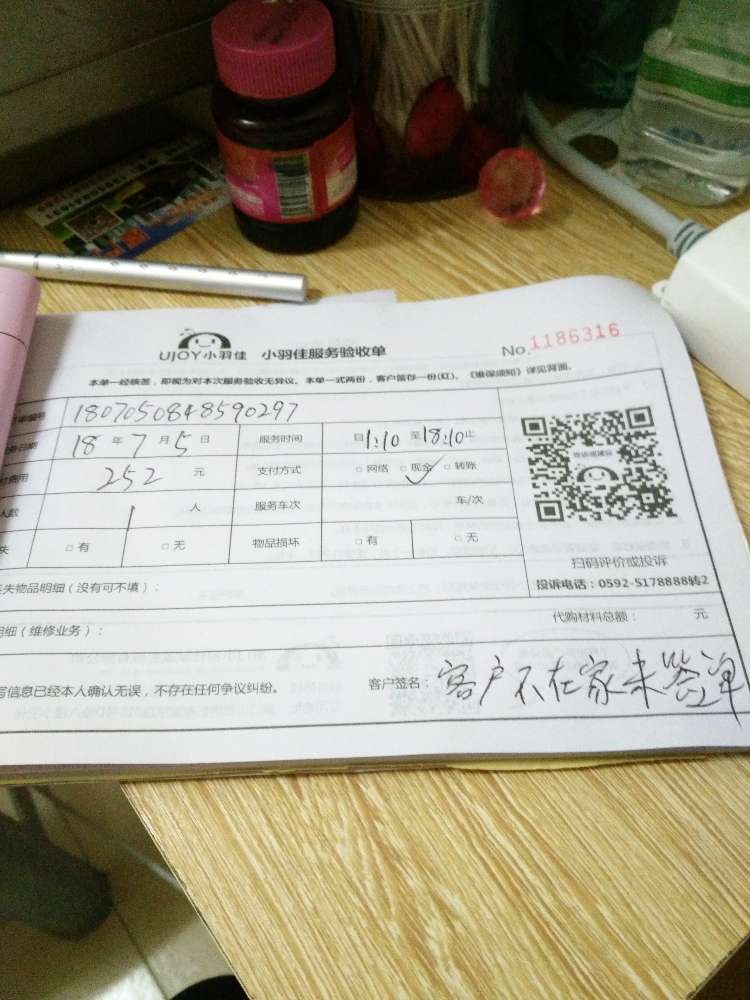 UJOY小羽佳 小羽佳服务验收单 No.1186316
本单一经核签，即视为对本次服务验收无异议。本单一式两份，客户留存一份(红)。《维保须知》详见背面。
编号 1807050848590297
日期 18 年 7 月 5 日 服务时间 自1:10 至18:10止
费用 252 元 支付方式 □ 网络 □ 现金 □ 转账
人数 1 人 服务车次 车/次
失 □ 有 □ 无 物品损坏 □ 有 □ 无
扫码评价或投诉
投诉电话：0592-5178888转2
失物品明细（没有可不填）：
代购材料总额： 元
明细（维修业务）：
写信息已经本人确认无误，不存在任何争议纠纷。 客户签名：客户不在家未签单